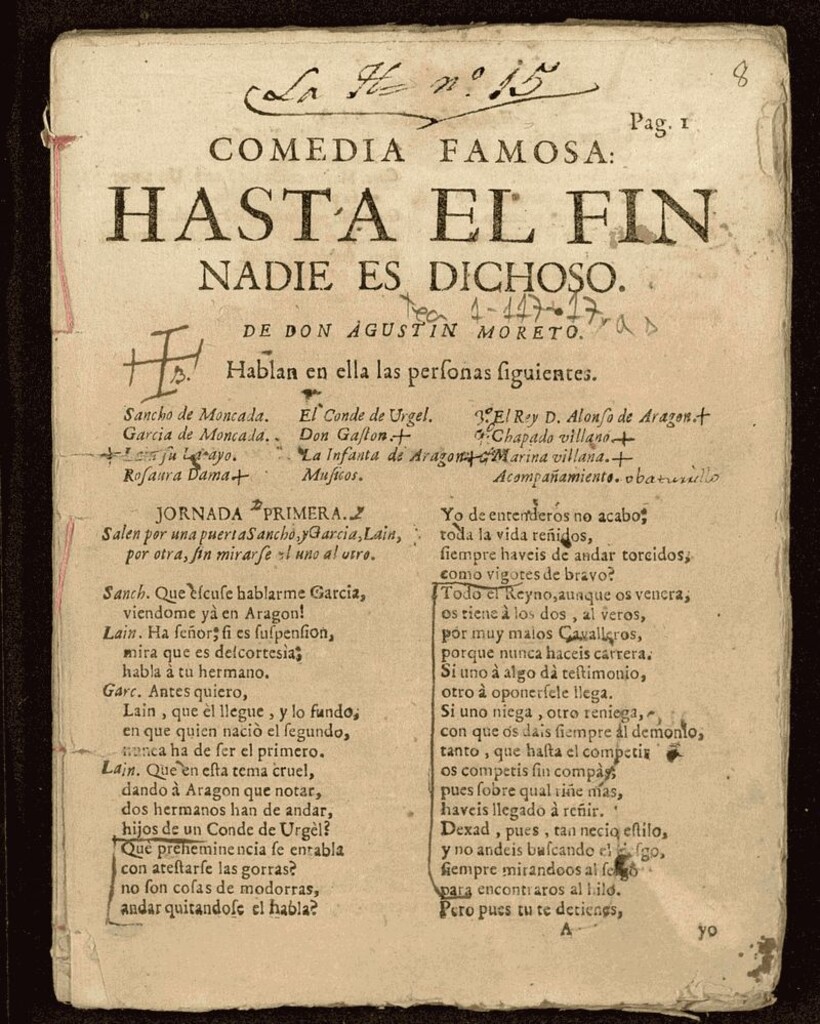 La H= nº. 15
8
Pag. 1
COMEDIA FAMOSA:
HASTA EL FIN
NADIE ES DICHOSO.
Tea 1-117-17,
DE DON AGUSTIN MORETO.
B.
Hablan en ella las personas siguientes.
Sancho de Moncada. El Conde de Urgel. El Rey D. Alonso de Aragon.
Garcia de Moncada. Don Gaston. Chapado villano.
Lain su Lacayo. La Infanta de Aragon. Marina villana.
Rosaura Dama. Musicos. Acompañamiento.
JORNADA PRIMERA.
Salen por una puerta Sancho, y Garcia, Lain,
por otra, sin mirarse el uno al otro.
Sanch. Que escuse hablarme Garcia,
viendome yà en Aragon!
Lain. Ha señor; si es suspension,
mira que es descortesia;
habla à tu hermano.
Garc. Antes quiero,
Lain, que èl llegue, y lo fundo,
en que quien naciò el segundo,
nunca ha de ser el primero.
Lain. Que en esta tema cruel,
dando à Aragon que notar,
dos hermanos han de andar,
hijos de un Conde de Urgèl?
Que preheminencia se entabla
con atestarse las gorras?
no son cosas de modorras,
andar quitandose el habla?
Yo de entenderos no acabo;
toda la vida reñidos,
siempre haveis de andar torcidos,
como vigotes de bravo?
Todo el Reyno, aunque os venera,
os tiene à los dos, al veros,
por muy malos Cavalleros,
porque nunca haceis carrera.
Si uno à algo dà testimonio,
otro à oponersele llega.
Si uno niega, otro reniega,
con que os dais siempre al demonio,
tanto, que hasta el competir
os competis sin compàs;
pues sobre qual riñe mas,
haveis llegado à reñir.
Dexad, pues, tan necio estilo,
y no andeis buscando el
siempre mirandoos al sesgo
para encontraros al hilo.
Pero pues tu te detienes,
A yo